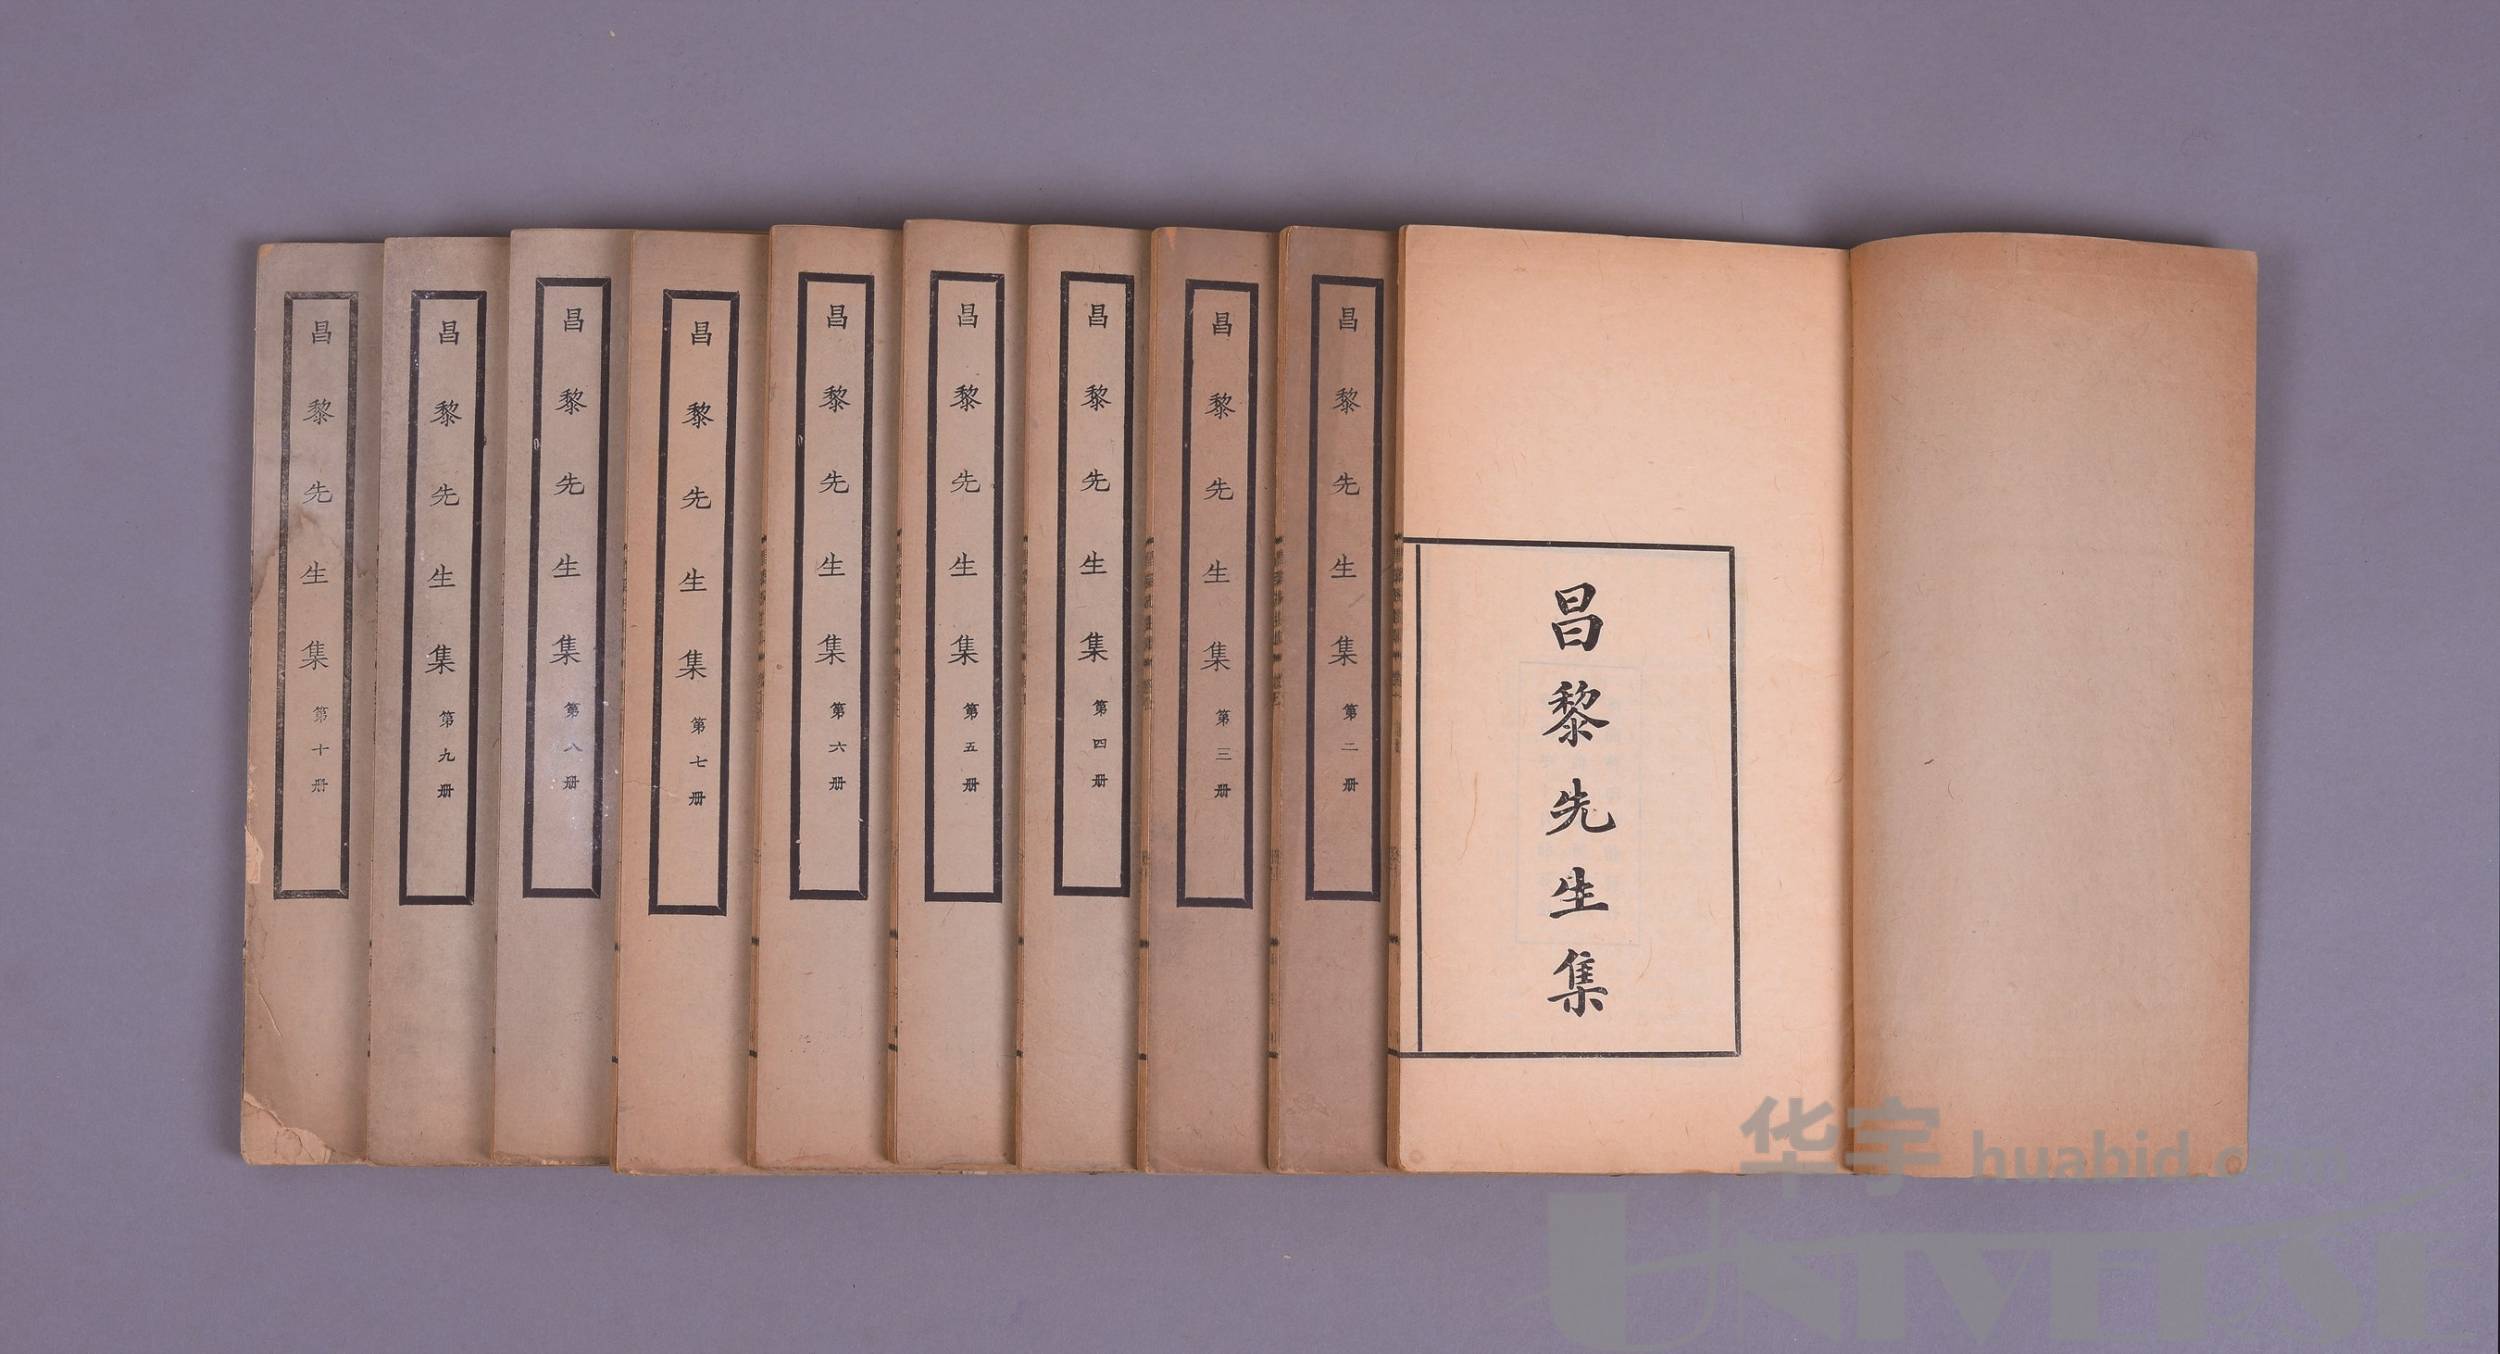 昌黎先生集
昌黎先生集 第二册
昌黎先生集 第三册
昌黎先生集 第四册
昌黎先生集 第五册
昌黎先生集 第六册
昌黎先生集 第七册
昌黎先生集 第八册
昌黎先生集 第九册
昌黎先生集 第十册
华宇 huabid.com